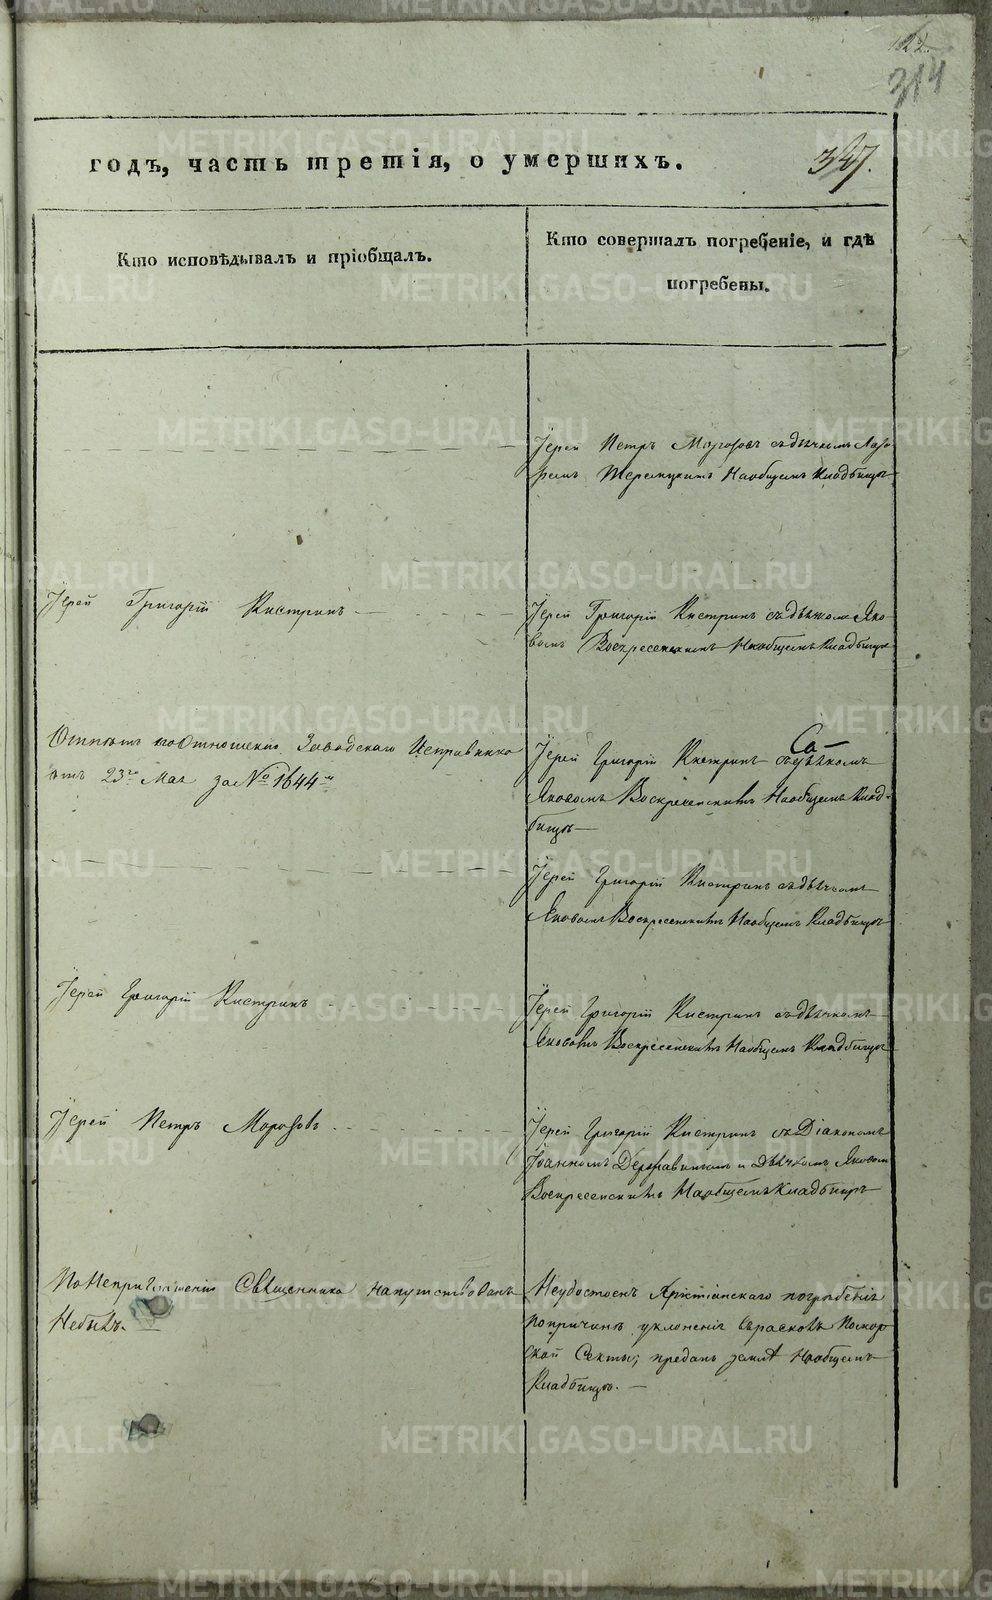 314
годъ, часть третія, о умершихъ.
347.
Кто исповѣдывалъ и пріобщалъ.
Кто совершалъ погребеніе, и гдѣ
погребены.
Іерей Петръ Морозовъ съ дьячкомъ Лазо-
ремъ Наобщемъ Кладбищѣ
Іерей Григорій Кистринъ
Іерей Григорій Кистринъ съ дьячкомъ Яко-
вомъ Воскресенскимъ Наобщемъ Кладбищѣ
Отпѣтъ по Отношенію Заводскаго Исправника
отъ 23го Мая за № 1644м
Іерей Григорій Кистринъ съ дьячкомъ
Яковомъ Воскресенскимъ Наобщемъ Клад-
бищѣ
Іерей Григорій Кистринъ съ дьячкомъ
Яковомъ Воскресенскимъ Наобщемъ Кладбищѣ
Іерей Григорій Кистринъ
Іерей Григорій Кистринъ съ дьячкомъ
Яковомъ Воскресенскимъ Наобщемъ Кладбищѣ
Іерей Петръ Морозовъ
Іерей Григорій Кистринъ съ Діакономъ
Іоанномъ Державинымъ и дьячкомъ Яковом
Воскресенскимъ Наобщемъ Кладбищѣ
По Неприглашенію Священника напутствованъ
Небылъ.
Неудостоенъ Христіанскаго погребенія
попричинѣ уклоненія въ расколъ Помор-
ской Секты; преданъ землѣ Наобщемъ
Кладбищѣ.
METRIKI.GASO-URAL.RU